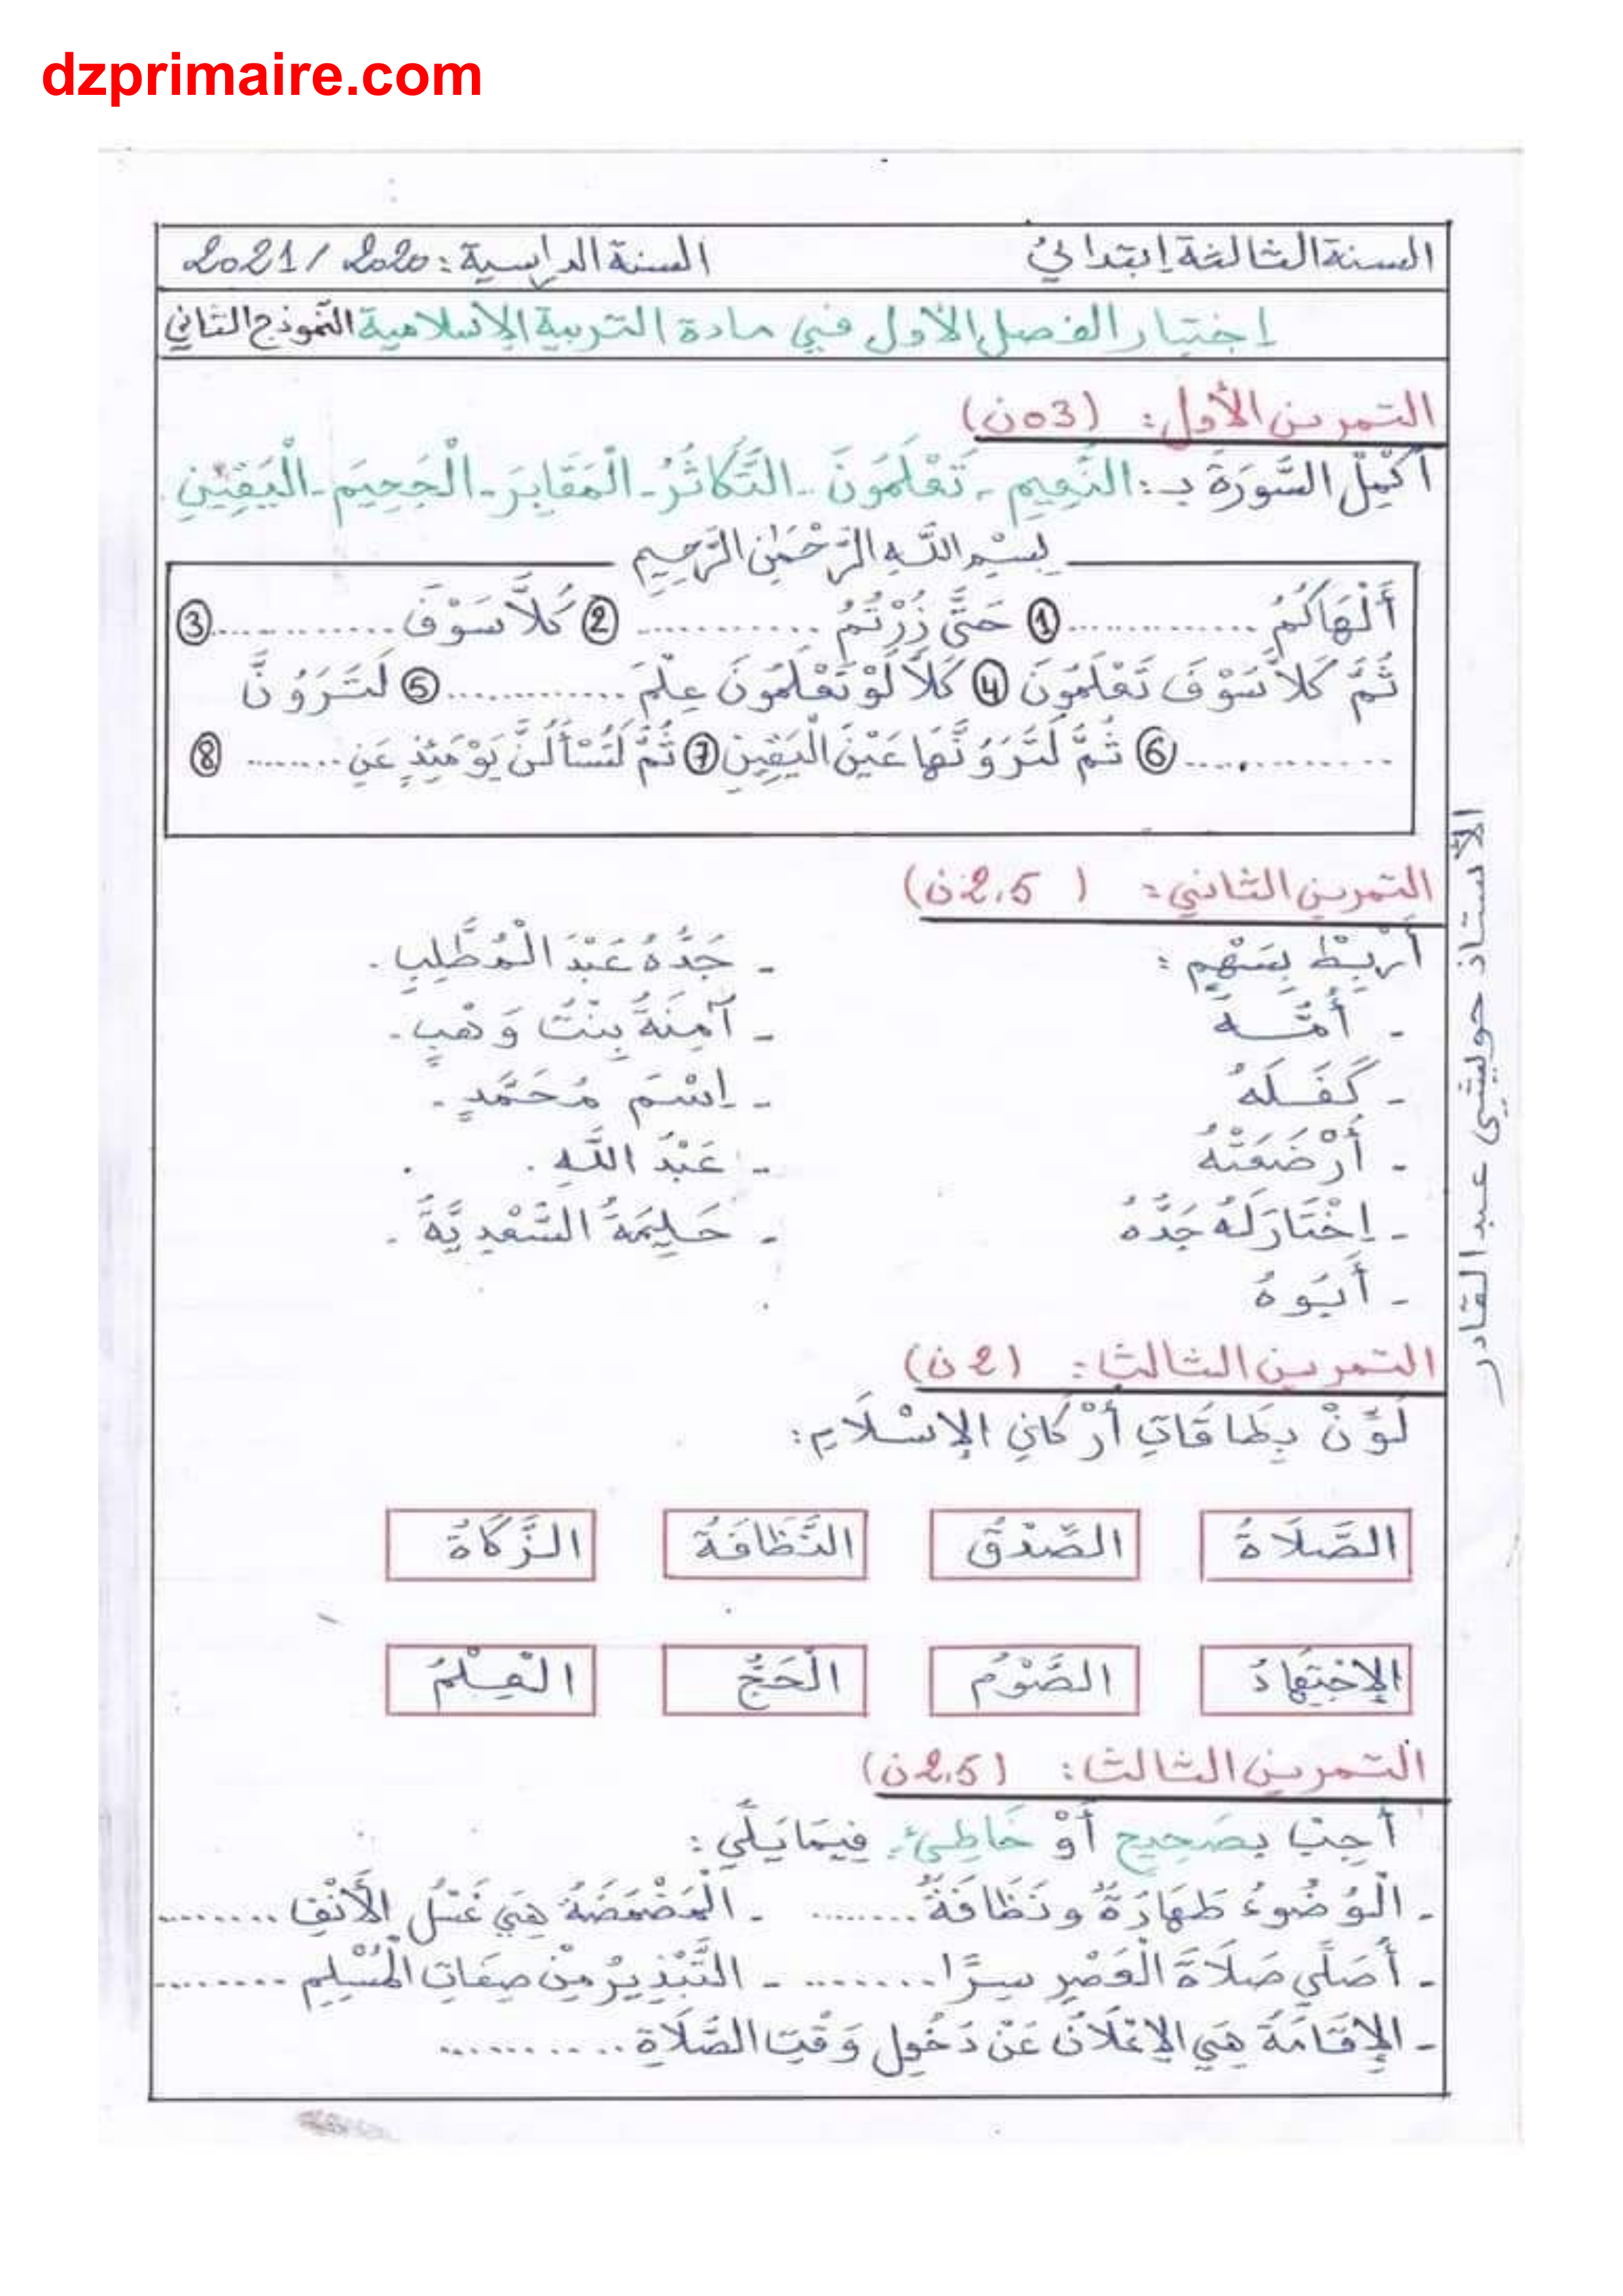 dzprimaire.com
السنة الثالثة إبتدائي السنة الدراسية: 2020 / 2021
إختبار الفصل الأول في مادة التربية الإسلامية النموذج الثاني
التمرين الأول: (03ن)
أَكْمِلْ السُّورَةَ بـ: النَّعِيمِ - تَعْلَمُونَ - التَّكَاثُرُ - الْمَقَابِرَ - الْجَحِيمَ - الْيَقِينِ
بِسْمِ اللَّهِ الرَّحْمَٰنِ الرَّحِيمِ
أَلْهَاكُمُ .............. ① حَتَّى زُرْتُمُ ............ ② كَلاَّ سَوْفَ ............ ③
ثُمَّ كَلاَّ سَوْفَ تَعْلَمُونَ ④ كَلاَّ لَوْ تَعْلَمُونَ عِلْمَ ............ ⑤ لَتَرَوُنَّ
.............. ⑥ ثُمَّ لَتَرَوُنَّهَا عَيْنَ الْيَقِينِ ⑦ ثُمَّ لَتُسْأَلُنَّ يَوْمَئِذٍ عَنِ ........ ⑧
التمرين الثاني: ( 2.5ن)
أَرْبِطُ بِسَهْمٍ:
- جَدُّهُ عَبْدَ الْمُطَّلِبِ.
- أُمُّـــهُ - آمِنَةُ بِنْتُ وَهْبٍ.
- كَفَـلَهُ - إِسْمَ مُحَمَّدٍ.
- أَرْضَعَتْهُ - عَبْدُ اللَّهِ.
- إِخْتَارَ لَهُ جَدُّهُ - حَلِيمَةُ السَّعْدِيَّةُ.
- أَبُوهُ
التمرين الثالث: (2ن)
لَوِّنْ بِطَاقَاتِ أَرْكَانِ الإِسْلَامِ:
الصَّلَاةُ الصِّدْقُ النَّظَافَةُ الزَّكَاةُ
الإِجْتِهَادُ الصَّوْمُ الْحَجُّ الْعِلْمُ
التمرين الثالث: (2.5ن)
أَجِبْ بِصَحِيحٍ أَوْ خَاطِئٍ فِيمَا يَلِي:
- الْوُضُوءُ طَهَارَةٌ وَنَظَافَةٌ ........ - الْمَضْمَضَةُ هِيَ غَسْلُ الأَنْفِ ........
- أُصَلِّي صَلَاةَ الْعَصْرِ سِرًّا ......... - التَّبْذِيرُ مِنْ صِفَاتِ الْمُسْلِمِ .........
- الإِقَامَةُ هِيَ الإِعْلَانُ عَنْ دُخُولِ وَقْتِ الصَّلَاةِ ...........
الأستاذ حويشي عبد القادر